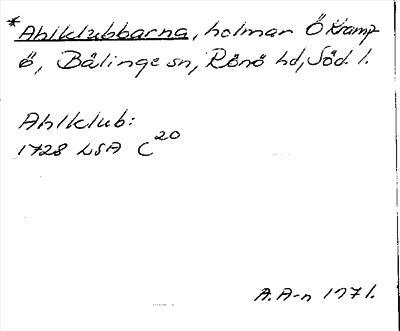 *Ahlklubbarna, holmar Ö Kramp
ö, Bälinge sn, Rönö hd, Söd. l.
Ahlklub:
1728 LSA C20
A. A-n 1971.